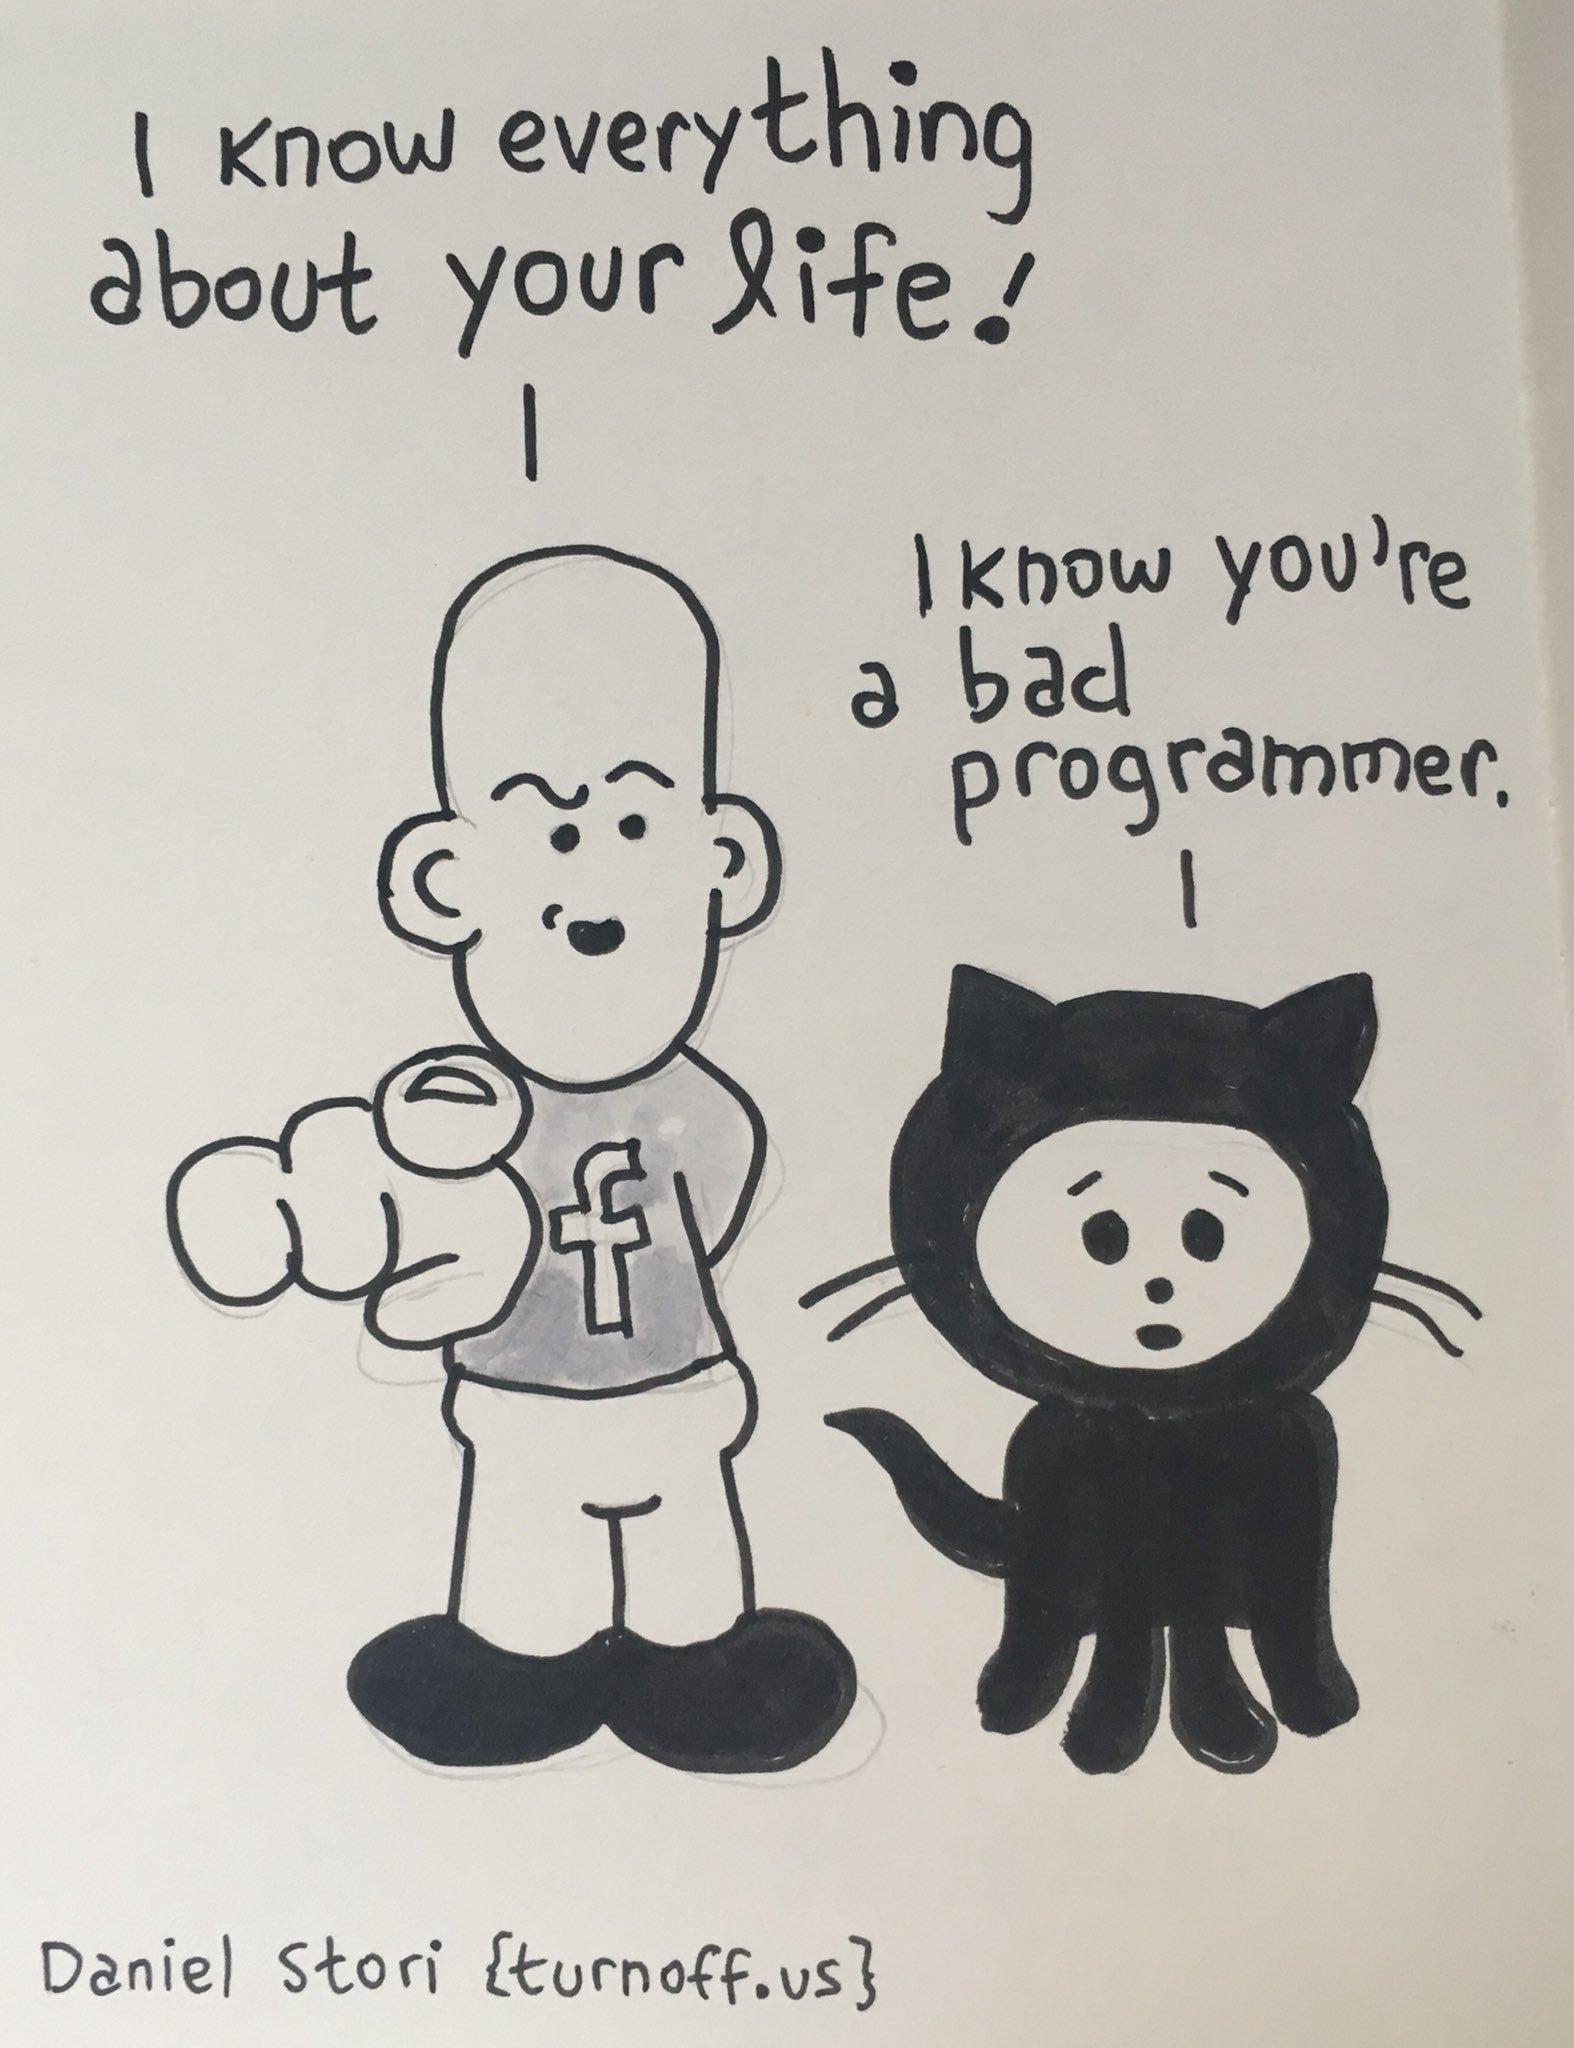 I know everything
about your life!
I know you're
a bad
programmer.
f
Daniel Stori {turnoff.us}